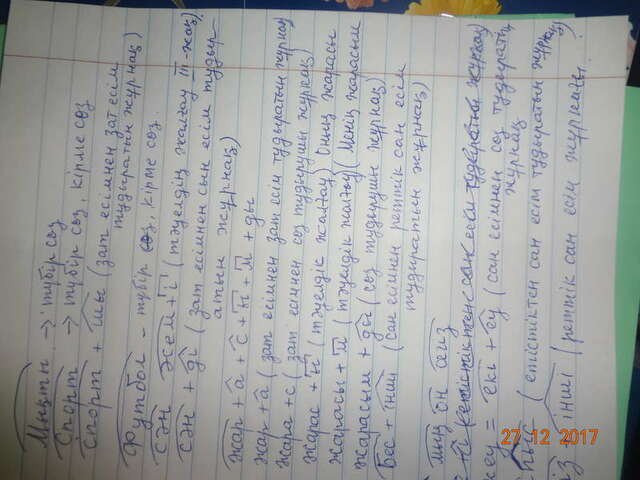 Мықты → түбір сөз
Спорт → түбір сөз, кірме сөз
спорт + шы (зат есімнен зат есім
тудыратын жұрнақ)
Футбол - түбір сөз, кірме сөз.
сән Әсем + і (тәуелдік жалғау III - жақ)
сән + ді (зат есімнен сын есім тудыр
атын жұрнақ)
жар + а + с + ы + м + ды
жар + а (зат есімнен зат есім тудыратын жұрнақ)
жара + с (зат есімнен сөз тудырушы жұрнақ)
жарас + ы (тәуелдік жалғау) Оның жарасы
жарасы + м (тәуелдік жалғау) (Менің жарасым
жарасым + ды (сөз тудырушы жұрнақ)
Бес + інші (сан есімнен реттік сан есім
тудыратын жұрнақ)
мың он сегіз
екі + еу (сан есімнен сөз тудыратын
жұрнақ
(етістіктен сан есім тудыратын жұрнақ)
інші (реттік сан есім жұрнағы.
27 12 2017